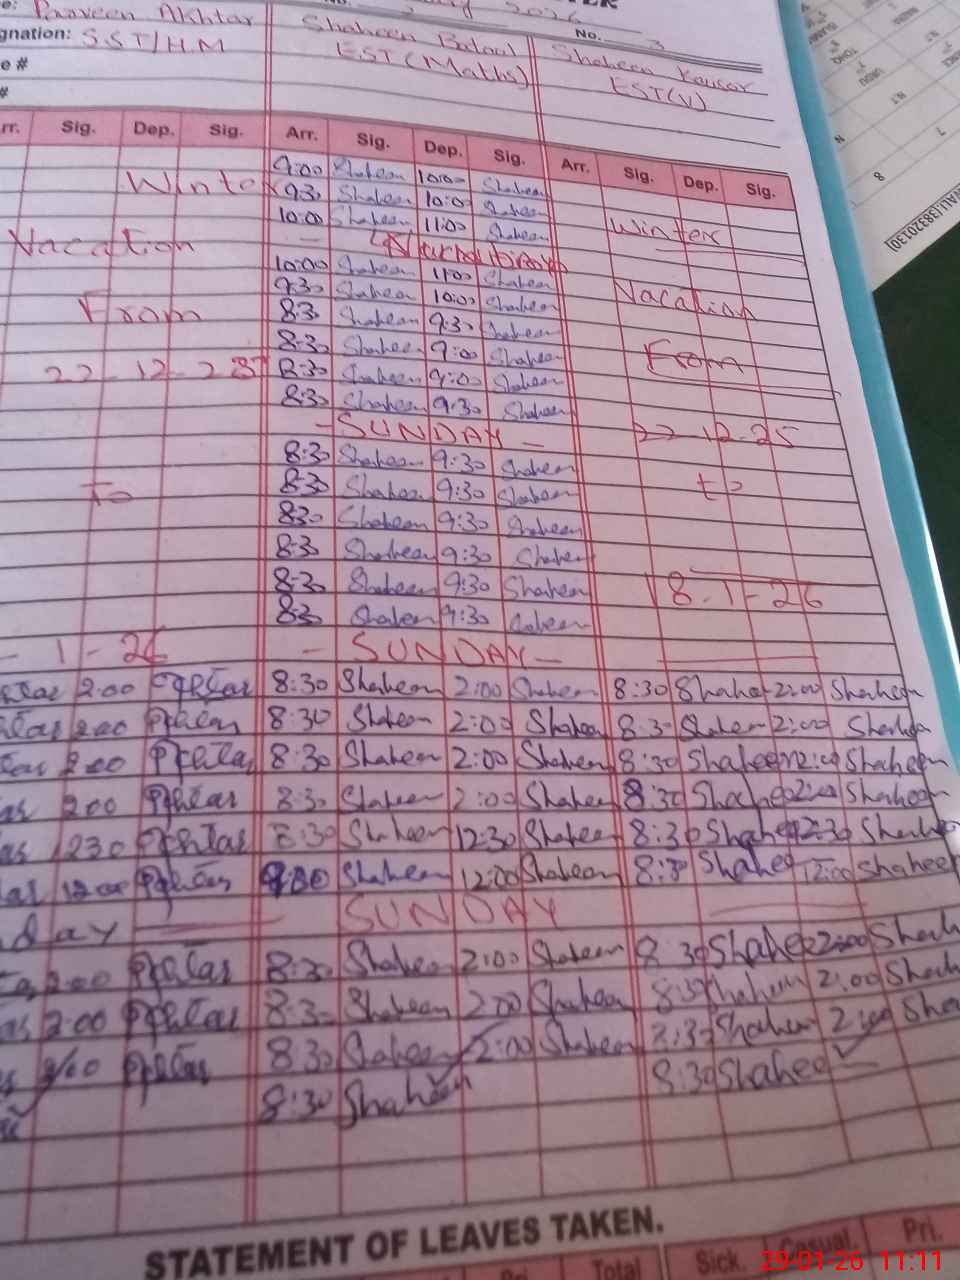 Parveen Akhtar
gnation: SST/HM
Shaheen Batool
EST (Maths)
No. 3
Shaheen Kausar
EST(V)
e #
#
rr. Sig. Dep. Sig. Arr. Sig. Dep. Sig. Arr. Sig. Dep. Sig.
Winter 9:00 Shaheen 10:00 Shaheen
9:30 Shaheen 10:00 Shaheen
10:00 Shaheen 11:00 Shaheen Winter
Vacation
10:00 Shaheen 11:00 Shaheen
9:30 Shaheen 10:00 Shaheen Vacation
From 8:30 Shaheen 9:30 Shaheen
8:30 Shaheen 9:00 Shaheen From
22-12-25 8:30 Shaheen 9:00 Shaheen
8:30 Shaheen 9:30 Shaheen
- SUNDAY - 22-12-25
8:30 Shaheen 9:30 Shaheen
to 8:30 Shaheen 9:30 Shaheen to
8:30 Shaheen 9:30 Shaheen
8:30 Shaheen 9:30 Shaheen
8:30 Shaheen 9:30 Shaheen 18-1-26
8:30 Shaheen 9:30 Shaheen
- 1 - 26 - SUNDAY -
2:00 8:30 Shaheen 2:00 Shaheen 8:30 Shaheen 2:00 Shaheen
2:00 8:30 Shaheen 2:00 Shaheen 8:30 Shaheen 2:00 Shaheen
2:00 8:30 Shaheen 2:00 Shaheen 8:30 Shaheen 2:00 Shaheen
2:00 8:30 Shaheen 2:00 Shaheen 8:30 Shaheen 2:00 Shaheen
1230 8:30 Shaheen 12:30 Shaheen 8:30 Shaheen 12:30 Shaheen
12:00 Shaheen 12:00 Shaheen 8:30 Shaheen 12:00 Shaheen
day SUNDAY
2:00 8:30 Shaheen 2:00 Shaheen 8:30 Shaheen 2:00 Shaheen
2:00 8:30 Shaheen 2:00 Shaheen 8:30 Shaheen 2:00 Shaheen
8:30 Shaheen 2:00 Shaheen 8:30 Shaheen 2:00 Sha
8:30 Shaheen 8:30 Shaheen
STATEMENT OF LEAVES TAKEN.
Pri. Total Sick. Casual. Pri.
29-01-26 11:11